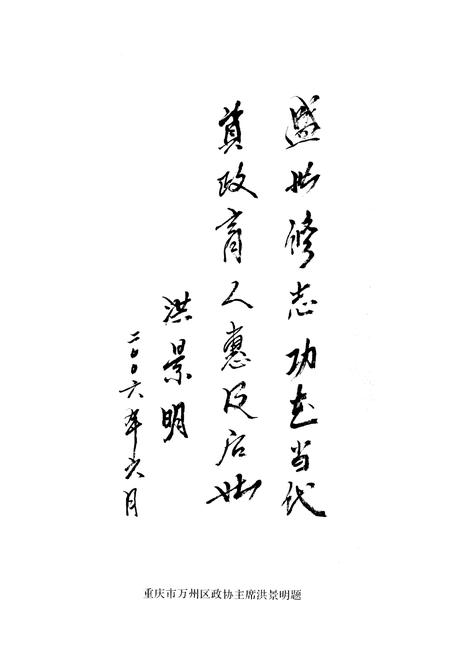 盛世修志功在当代
資政育人惠及后世
洪景明
二〇〇六年六月
重庆市万州区政协主席洪景明题